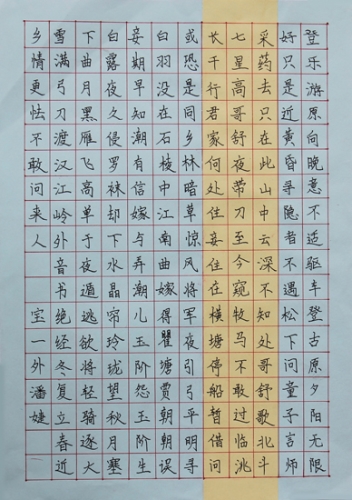 登乐游原向晚意不适驱车登古原夕阳无限
好只是近黄昏寻隐者不遇松下问童子言师
采药去只在此山中云深不知处哥舒歌北斗
七星高哥舒夜带刀至今窥牧马不敢过临洮
长干行君家何处住妾住在横塘停船暂借问
或恐是同乡林暗草惊风将军夜引弓平明寻
白羽没在石棱中江南曲嫁得瞿塘贾朝朝误
妾期早知潮有信嫁与弄潮儿玉阶怨玉阶生
白露夜久侵罗袜却下水晶帘玲珑望秋月塞
下曲月黑雁飞高单于夜遁逃欲将轻骑逐大
雪满弓刀渡汉江岭外音书绝经冬复立春近
乡情更怯不敢问来人 宝一外潘婕